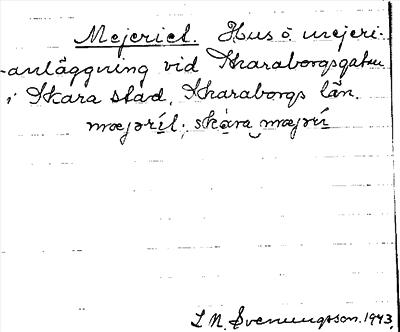 Mejeriet. Hus o. mejeri-
-anläggning vid Skaraborgsgatan
i Skara stad, Skaraborgs län.
mæjəríl; skàra mæjərí
L. N. Svenungsson. 1943.